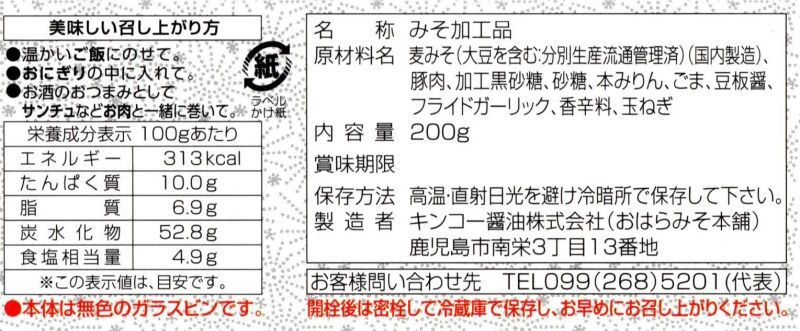 美味しい召し上がり方
●温かいご飯にのせて。
●おにぎりの中に入れて。
●お酒のおつまみとして
サンチュなどお肉と一緒に巻いて。
紙
ラベル
かけ紙
栄養成分表示 100gあたり
エネルギー 313kcal
たんぱく質 10.0g
脂質 6.9g
炭水化物 52.8g
食塩相当量 4.9g
※この表示値は、目安です。
●本体は無色のガラスビンです。
名称 みそ加工品
原材料名 麦みそ(大豆を含む:分別生産流通管理済)(国内製造)、
豚肉、加工黒砂糖、砂糖、本みりん、ごま、豆板醤、
フライドガーリック、香辛料、玉ねぎ
内容量 200g
賞味期限
保存方法 高温・直射日光を避け冷暗所で保存して下さい。
製造者 キンコー醤油株式会社(おはらみそ本舗)
鹿児島市南栄3丁目13番地
お客様問い合わせ先 TEL099(268)5201(代表)
開栓後は密栓して冷蔵庫で保存し、お早めにお召し上がりください。